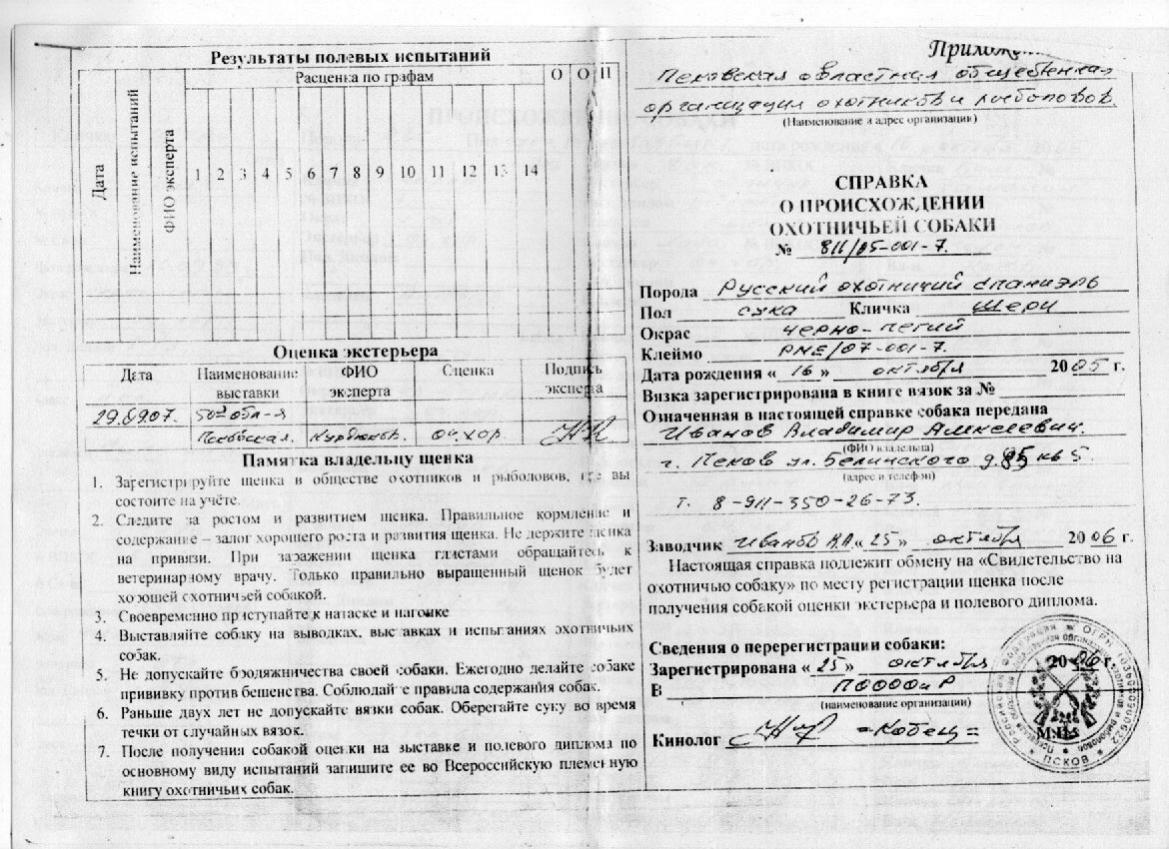 Результаты полевых испытаний
Дата
Наименование испытаний
ФИО эксперта
Расценка по графам
О О П
1 2 3 4 5 6 7 8 9 10 11 12 13 14
Оценка экстерьера
Дата Наименование выставки ФИО эксперта Оценка Подпись эксперта
29.6.907. 50ая обл-я
Псковская. Курбюков. оч.хор.
Памятка владельцу щенка
1. Зарегистрируйте щенка в обществе охотников и рыболовов, где вы
состоите на учёте.
2. Следите за ростом и развитием щенка. Правильное кормление и
содержание – залог хорошего роста и развития щенка. Не держите щенка
на привязи. При заражении щенка глистами обращайтесь к
ветеринарному врачу. Только правильно выращенный щенок будет
хорошей охотничьей собакой.
3. Своевременно приступайте к натаске и нагонке
4. Выставляйте собаку на выводках, выставках и испытаниях охотничьих
собак.
5. Не допускайте бродяжничества своей собаки. Ежегодно делайте собаке
прививку против бешенства. Соблюдайте правила содержания собак.
6. Раньше двух лет не допускайте вязки собак. Оберегайте суку во время
течки от случайных вязок.
7. После получения собакой оценки на выставке и полевого диплома по
основному виду испытаний запишите ее во Всероссийскую племенную
книгу охотничьих собак.
Псковская областная общественная
организация охотников и рыболовов
(Наименование и адрес организации)
СПРАВКА
О ПРОИСХОЖДЕНИИ
ОХОТНИЧЬЕЙ СОБАКИ
№ 811/05-001-7.
Порода Русский охотничий спаниэль
Пол сука Кличка Шери
Окрас черно-пегий
Клеймо PNE/07-001-7.
Дата рождения « 16 » октября 2005 г.
Вязка зарегистрирована в книге вязок за №
Означенная в настоящей справке собака передана
Иванов Владимир Алексеевич.
(ФИО владельца)
г. Псков ул. Белинского д. 85 кв 5.
(адрес и телефон)
т. 8-911-350-26-73.
Заводчик Иванов В.А. « 25 » октября 2006 г.
Настоящая справка подлежит обмену на «Свидетельство на
охотничью собаку» по месту регистрации щенка после
получения собакой оценки экстерьера и полевого диплома.
Сведения о перерегистрации собаки:
Зарегистрирована « 25 » октября 2006 г.
В ПООООиР
(наименование организации)
М.П.
Кинолог =Кобец=
ПСКОВ